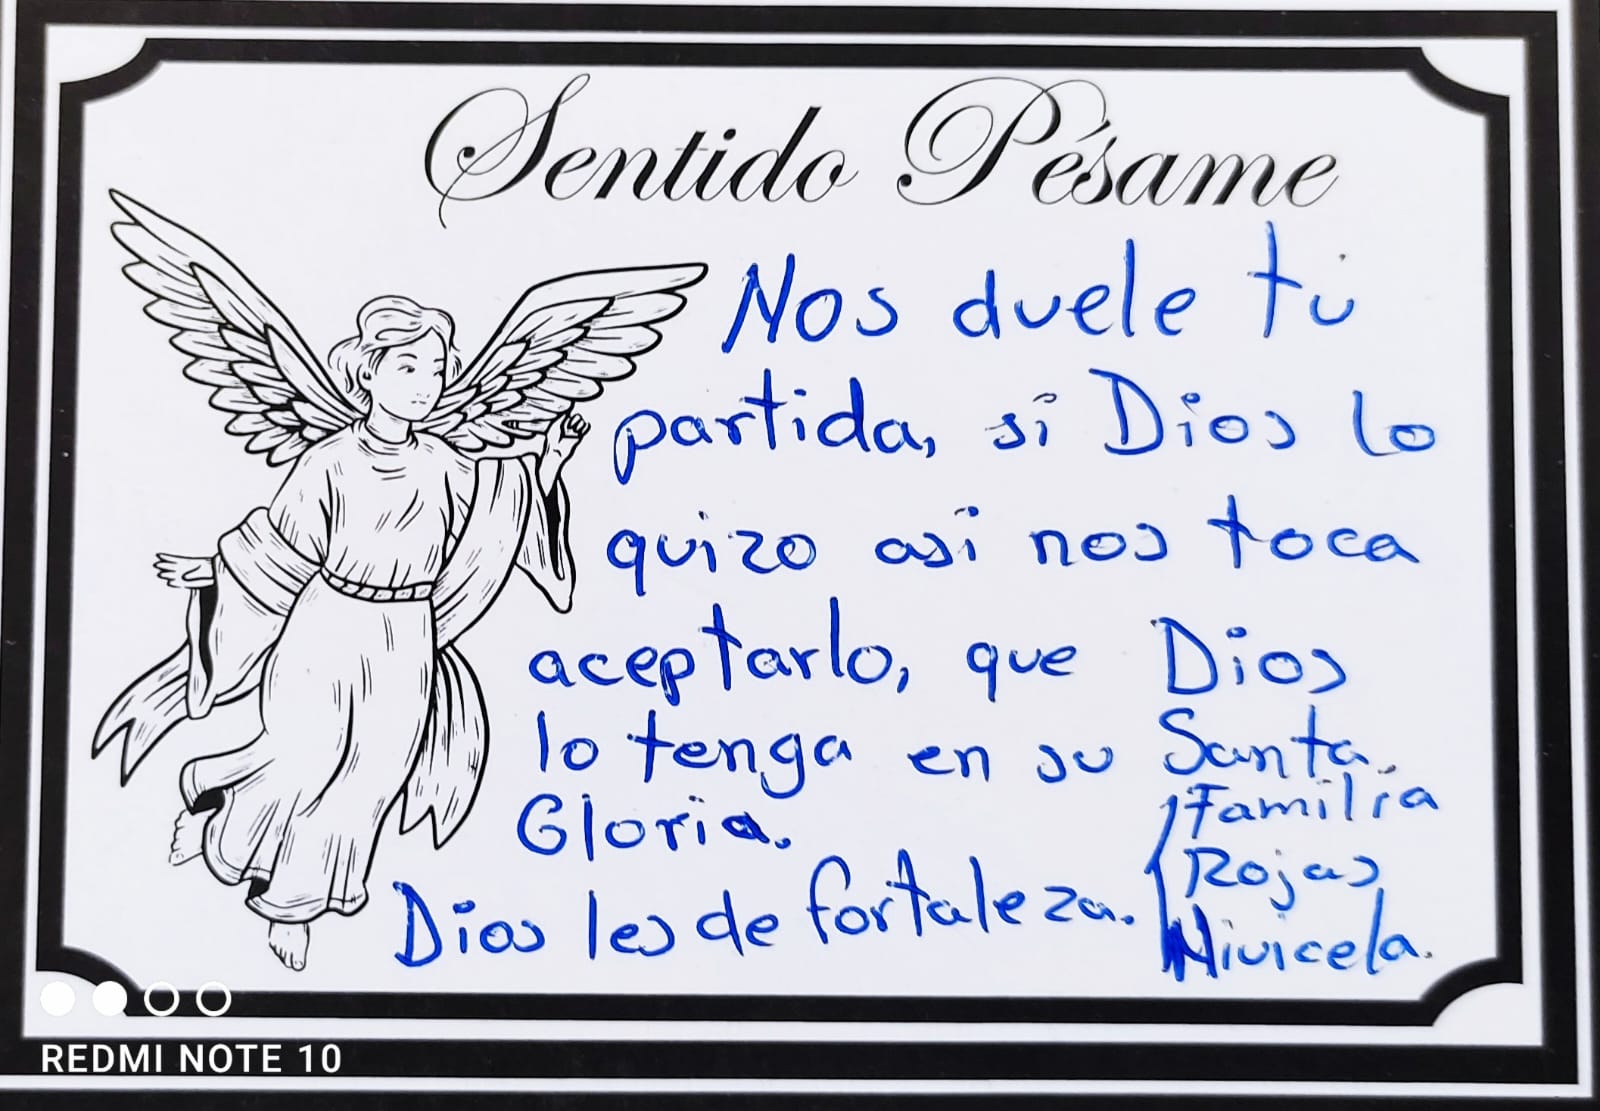 Sentido Pésame
Nos duele tu
partida, si Dios lo
quizo asi nos toca
aceptarlo, que Dios
lo tenga en su Santa.
Gloria.
Dios les de fortaleza.
Familia
Rojas
Nivicela.
REDMI NOTE 10